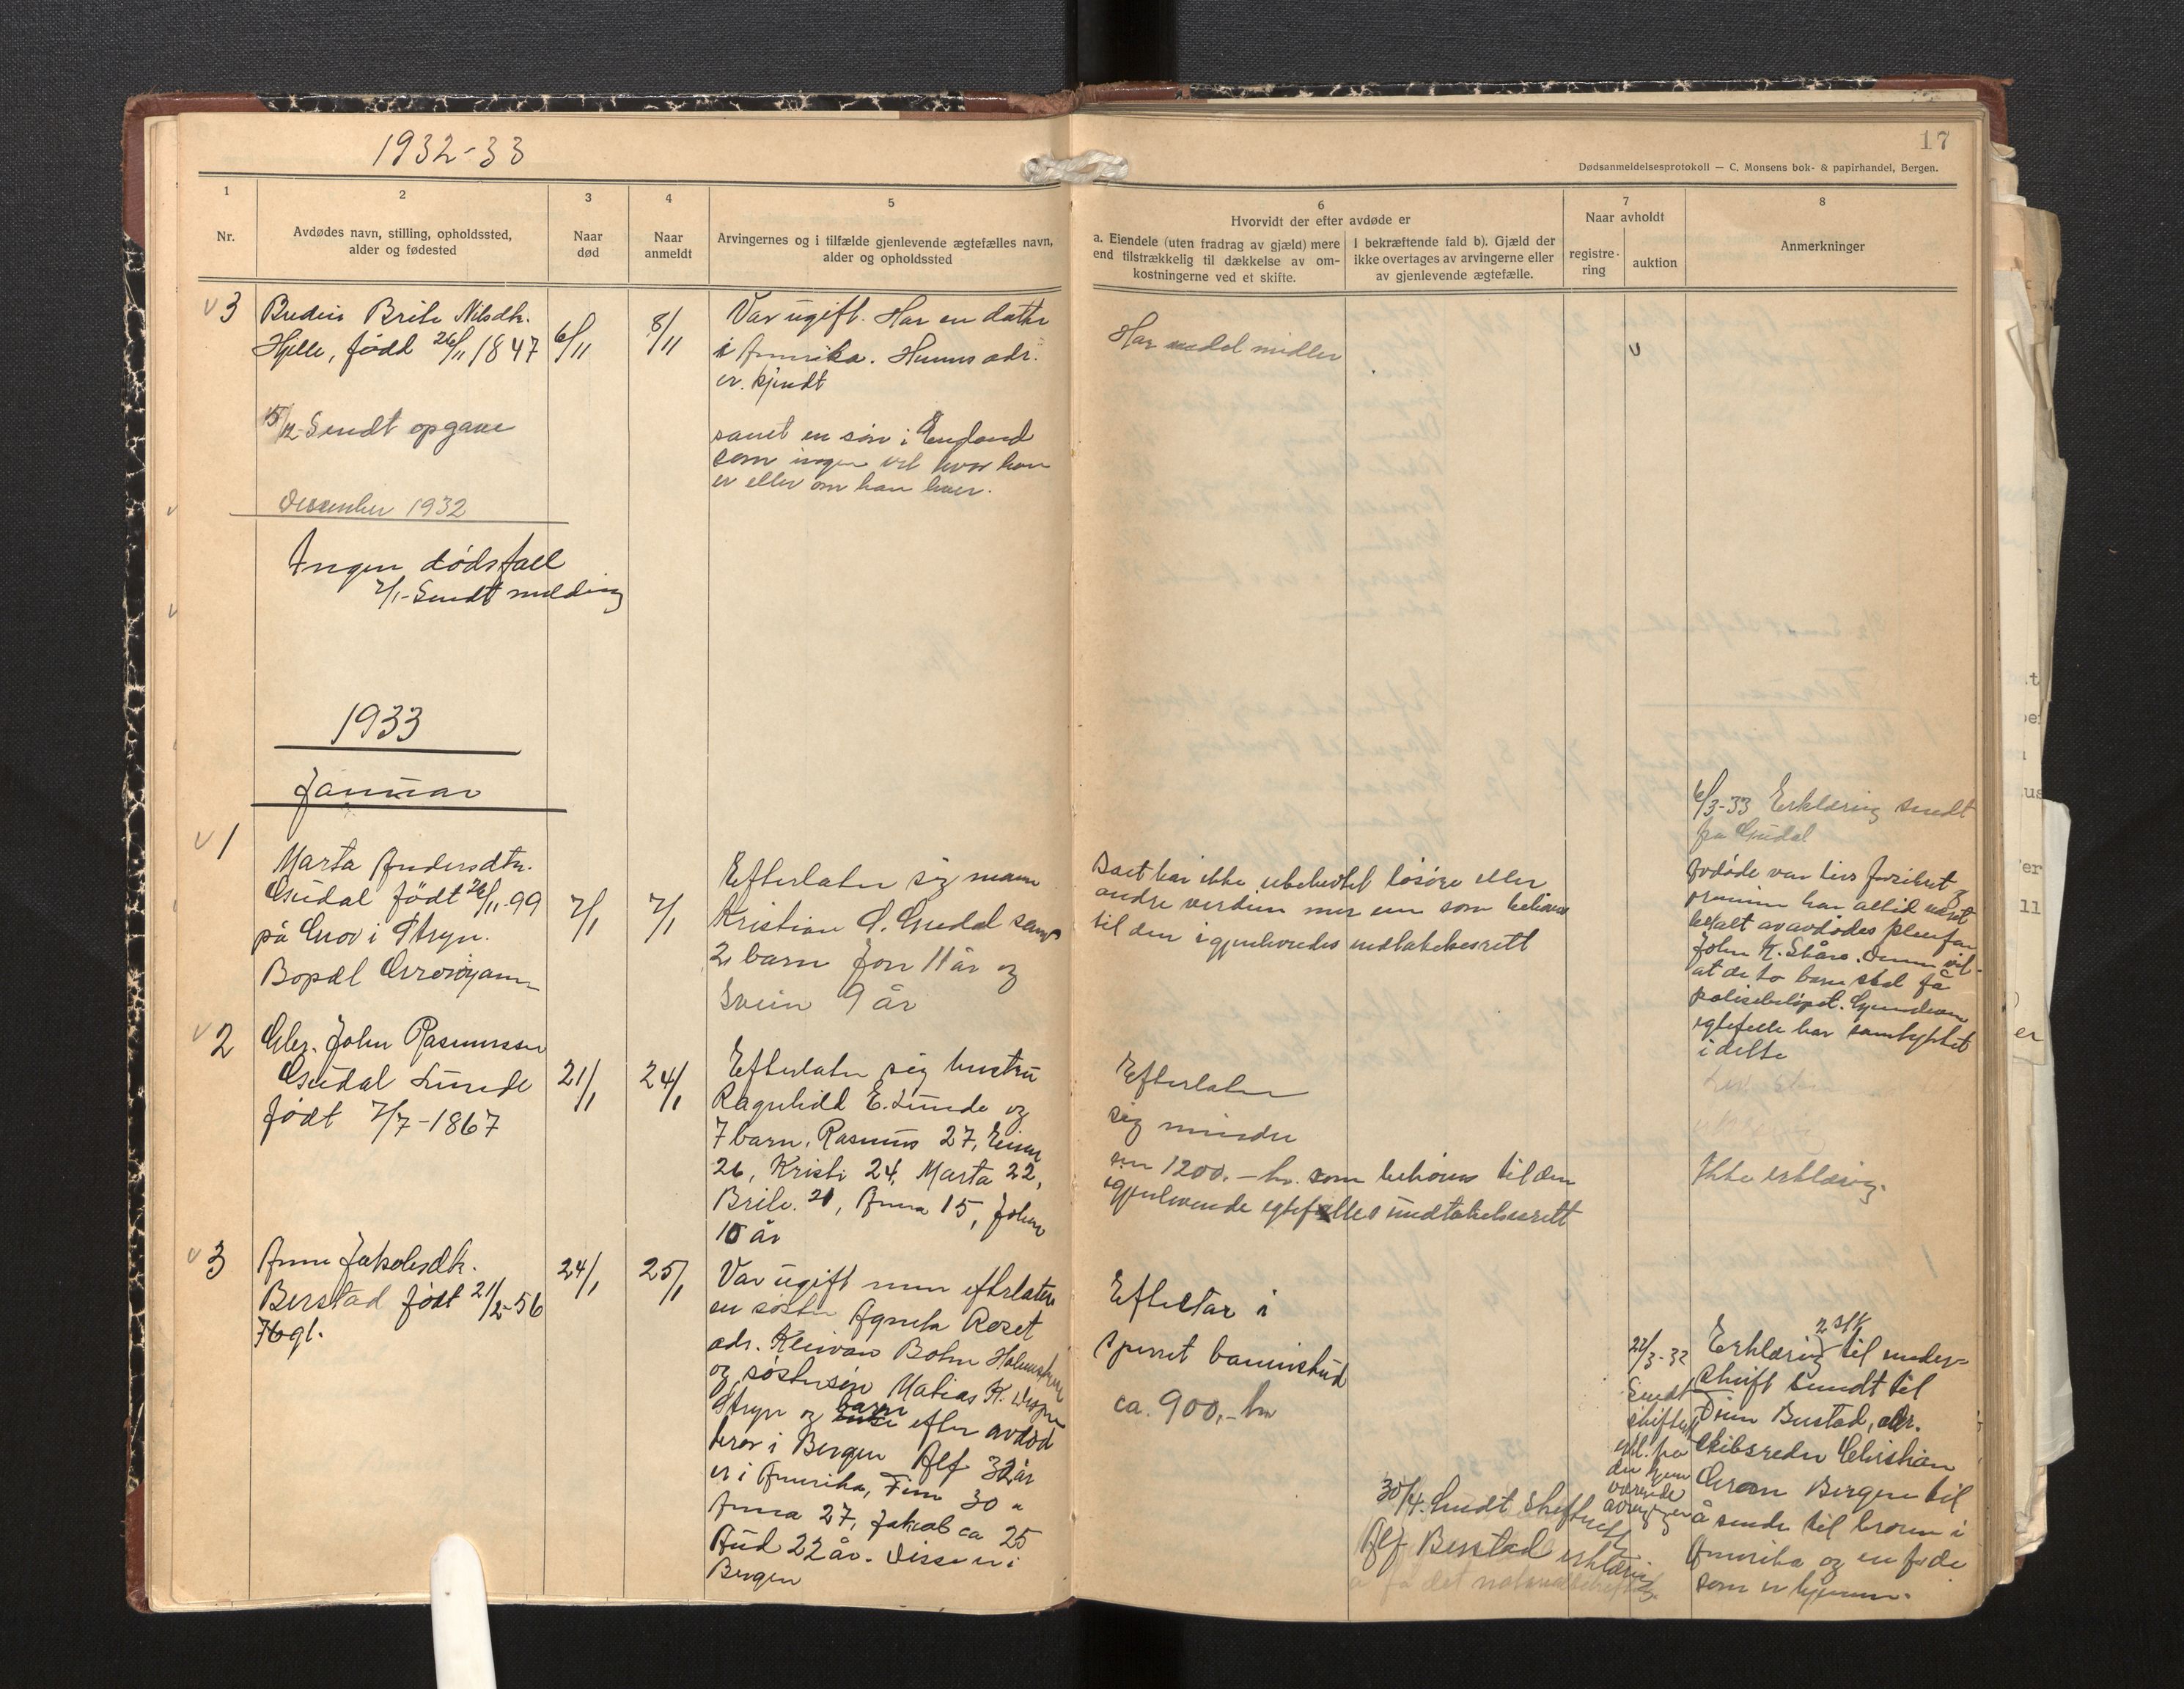 1932-33
17
Dødsanmeldelsesprotokoll — C. Monsens bok- & papirhandel, Bergen.
1
Nr.
2
Avdødes navn, stilling, opholdssted,
alder og fødested
3
Naar
død
4
Naar
anmeldt
5
Arvingernes og i tilfælde gjenlevende ægtefælles navn,
alder og opholdssted
6
Hvorvidt der efter avdøde er
a. Eiendele (uten fradrag av gjæld) mere
end tilstrækkelig til dækkelse av om-
kostningerne ved et skifte.
I bekræftende fald b). Gjæld der
ikke overtages av arvingerne eller
av gjenlevende ægtefælle.
7
Naar avholdt
registre-
ring
auktion
8
Anmerkninger
3
Brite Nilsdtr.
Hjelle, født 26/11 1847
6/11
8/11
Var ugift. Har en datter
i Amerika. Hennes adr.
er kjendt
samt en søn i England
som ingen vet hvor han
er eller om han lever.
Har endel midler
15/12 Sendt opgave
December 1932
Ingen dødsfall
2/1- Sendt melding
1933
Januar
1
Marta Andersdtr.
Gudal født 26/11-99
på Grov i Stryn.
Bopæl
7/1
7/1
Efterlater sig mann
Kristian S. Gudal samt
2 barn Jon 11 år og
Svein 9 år
Boet har ikke ubeheftet løsøre eller
andre verdier mer enn som behøves
til den igjenlevendes undtakelsesrett
6/3-33 Erklæring sendt
fra Gudal
Avdøde var livsforsikret og
premien har altid været
betalt av avdødes pleiefar
John K. Skåre. Denne vil
at de to barn skal få
polisebeløpet. Gjenlevende
egtefelle har samtykket
i dette
2
Gbr. John Rasmussen
Gudal Lunde
født 7/7-1867
21/1
24/1
Efterlater sig hustru
Ragnhild E. Lunde og
7 barn, Rasmus 27, Einar
26, Kristi 24, Marta 22,
Brite 21, Anna 15, Johan
10 år
Efterlater
sig mindre
enn 1200.- kr. som behøves til den
igjenlevende egtefelles undtakelsesrett
Ikke erklæring.
3
Anne Jakobsdtr.
Berstad født 21/2-56
76 gl.
24/1
25/1
Var ugift men efterlater
en søster Agneta Roset
adr. Bohn
og søstersøn Matias K.
Stryn og barn efter avdød
bror i Bergen Alf 32 år
er i Amerika, Finn 30 "
Anna 27, Jakob ca 25
Aud 22 år. Disse er i
Bergen
Eftelstår i
sparret
ca. 900,- kr
30/4. Sendt Skifterett
Alf Berstad erklæring
22/3-33
Sendt
skifterett
erkl. fra
de hjem
værende
arvinger
2 stk
Erklæring til under-
skrift sendt til
Finn Berstad, adr.
skibsreder Christian
Bergen til
å sende til broren i
Amerika og en for de
som er hjemme.